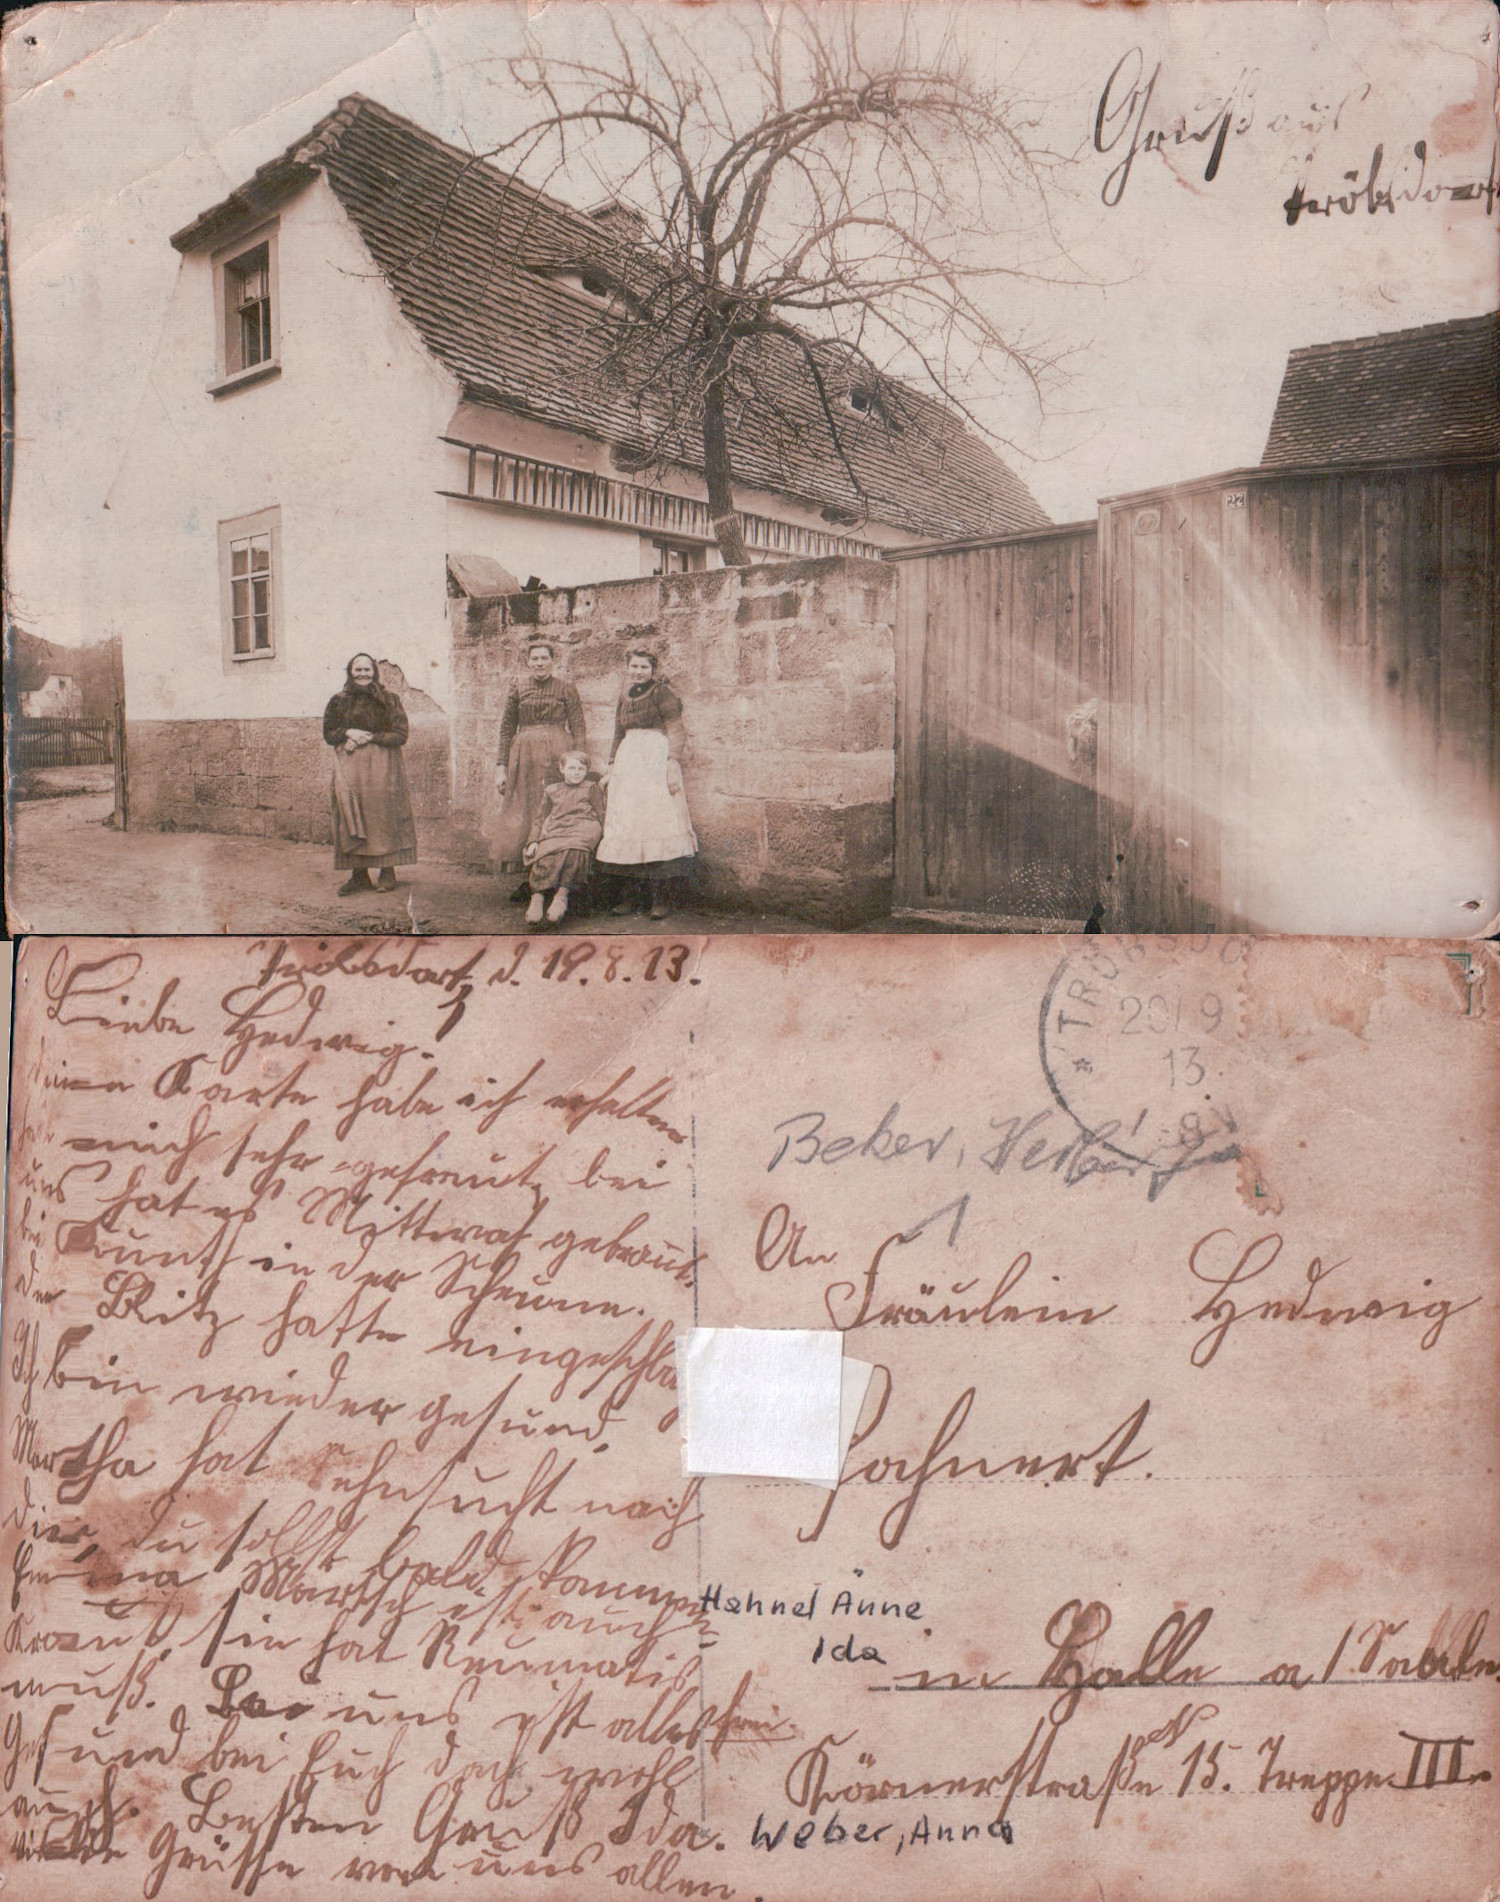 Gruß aus
Tröbsdorf
22
Tröbsdorf, d. 19. 8. 13.
Liebe Hedwig.
deine Karte habe ich erhalten
habe mich sehr gefreut, bei
uns hat es Mittwoch gebrannt.
bei Kunth in der Scheune.
der Blitz hatte eingeschla
Ich bin wieder gesund,
Martha hat sehnsucht nach
dier, du sollst bald kommen
Emma Martsch ist auch
Krank, sie hat Reumatis
muß. Bei uns ist alles
Gesund bei Euch doch wohl
auch. Besten Gruß Ida.
viele Grüsse von uns allen.
TRÖBSDO
20/9
13.
8
Beker,
An
Fräulein Hedwig
Hahnert.
Hahnel Änne
Ida
in Halle a/Saale
Körnerstraße No 15. Treppe III.
Weber, Anna